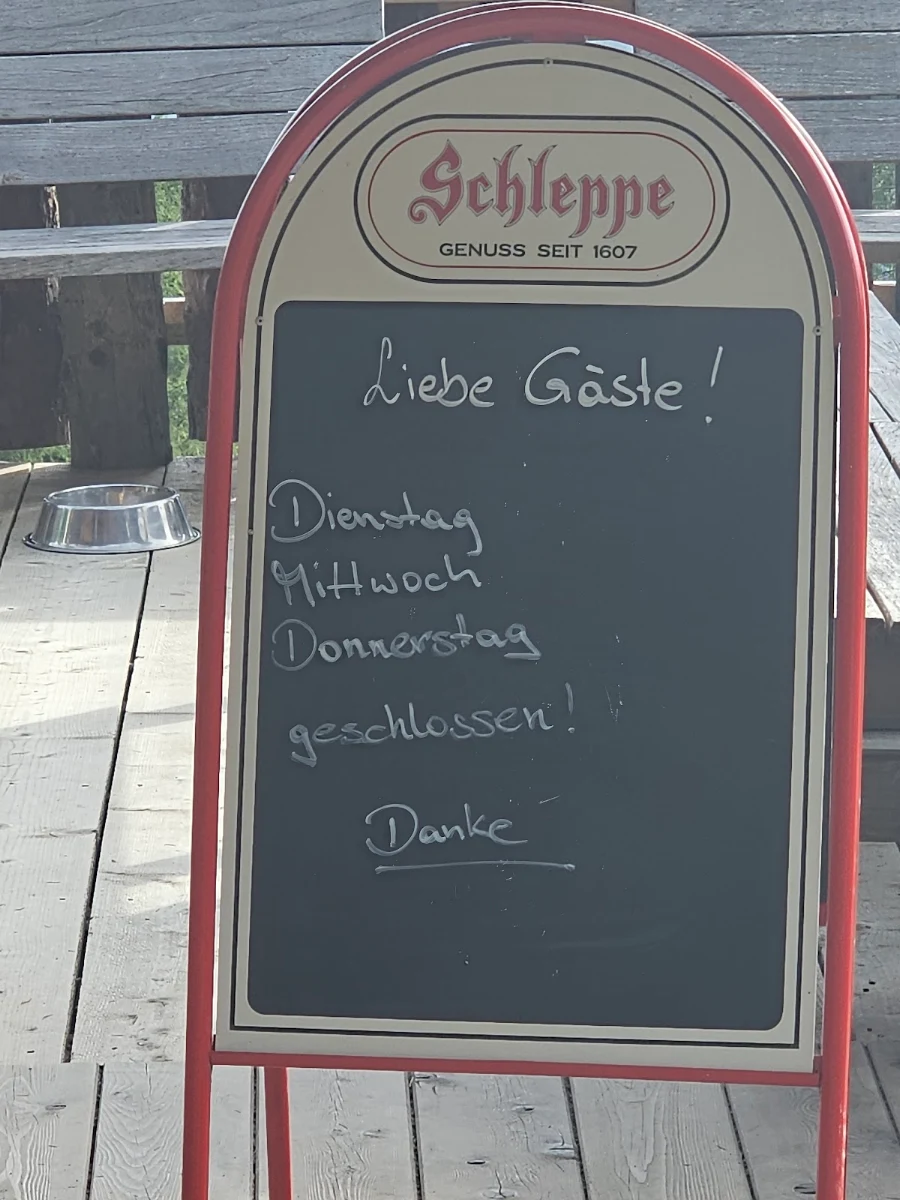 Schleppe
GENUSS SEIT 1607
Liebe Gäste!
Dienstag
Mittwoch
Donnerstag
geschlossen!
Danke